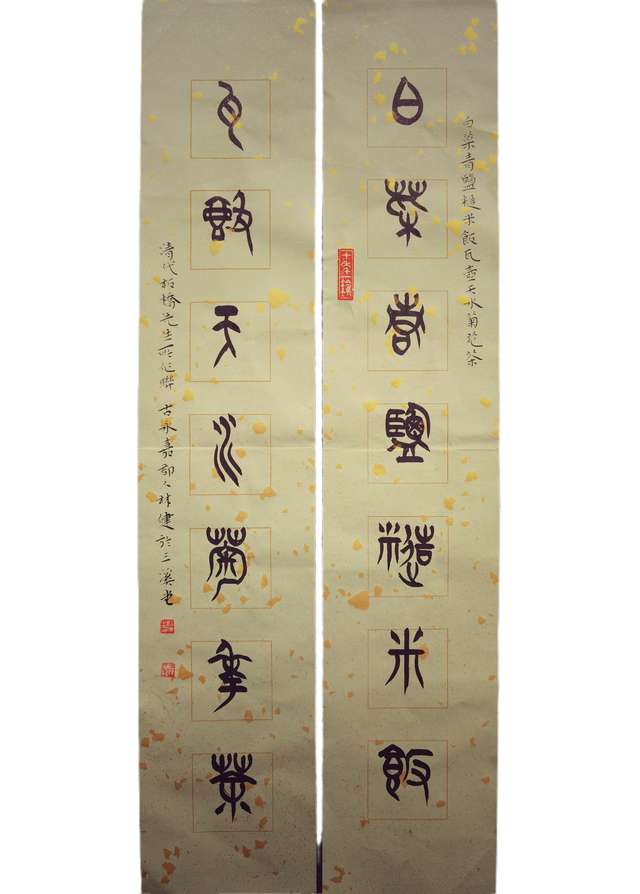 白菜青鹽糙米飯瓦壺天水菊花茶
白菜青鹽糙米飯
瓦壺天水菊花茶
清代板橋先生所作聯 古永嘉郡人林健於三溪堂